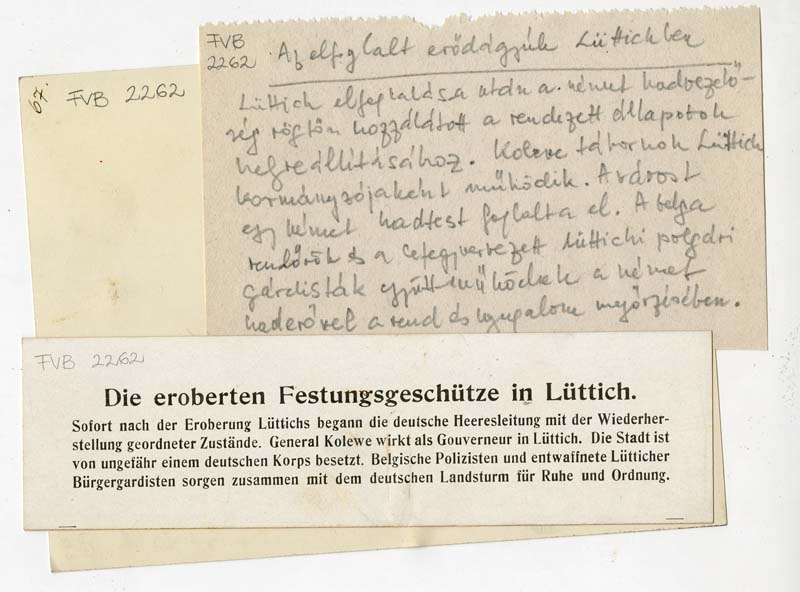 FVB
2262
Az elfoglalt erődágyúk Lüttichben
Lüttich elfoglalása után a német hadvezető-
ség rögtön hozzálátott a rendezett állapotok
helyreállításához. Kolewe tábornok Lüttich
kormányzójaként működik. A várost
egy német hadtest foglalta el. A belga
rendőrök és a lefegyverzett lüttichi polgári
gárdisták együttműködnek a német
haderővel a rend és nyugalom megőrzésében.
67
FVB 2262
FVB 2262
Die eroberten Festungsgeschütze in Lüttich.
Sofort nach der Eroberung Lüttichs begann die deutsche Heeresleitung mit der Wiederher-
stellung geordneter Zustände. General Kolewe wirkt als Gouverneur in Lüttich. Die Stadt ist
von ungefähr einem deutschen Korps besetzt. Belgische Polizisten und entwaffnete Lütticher
Bürgergardisten sorgen zusammen mit dem deutschen Landsturm für Ruhe und Ordnung.